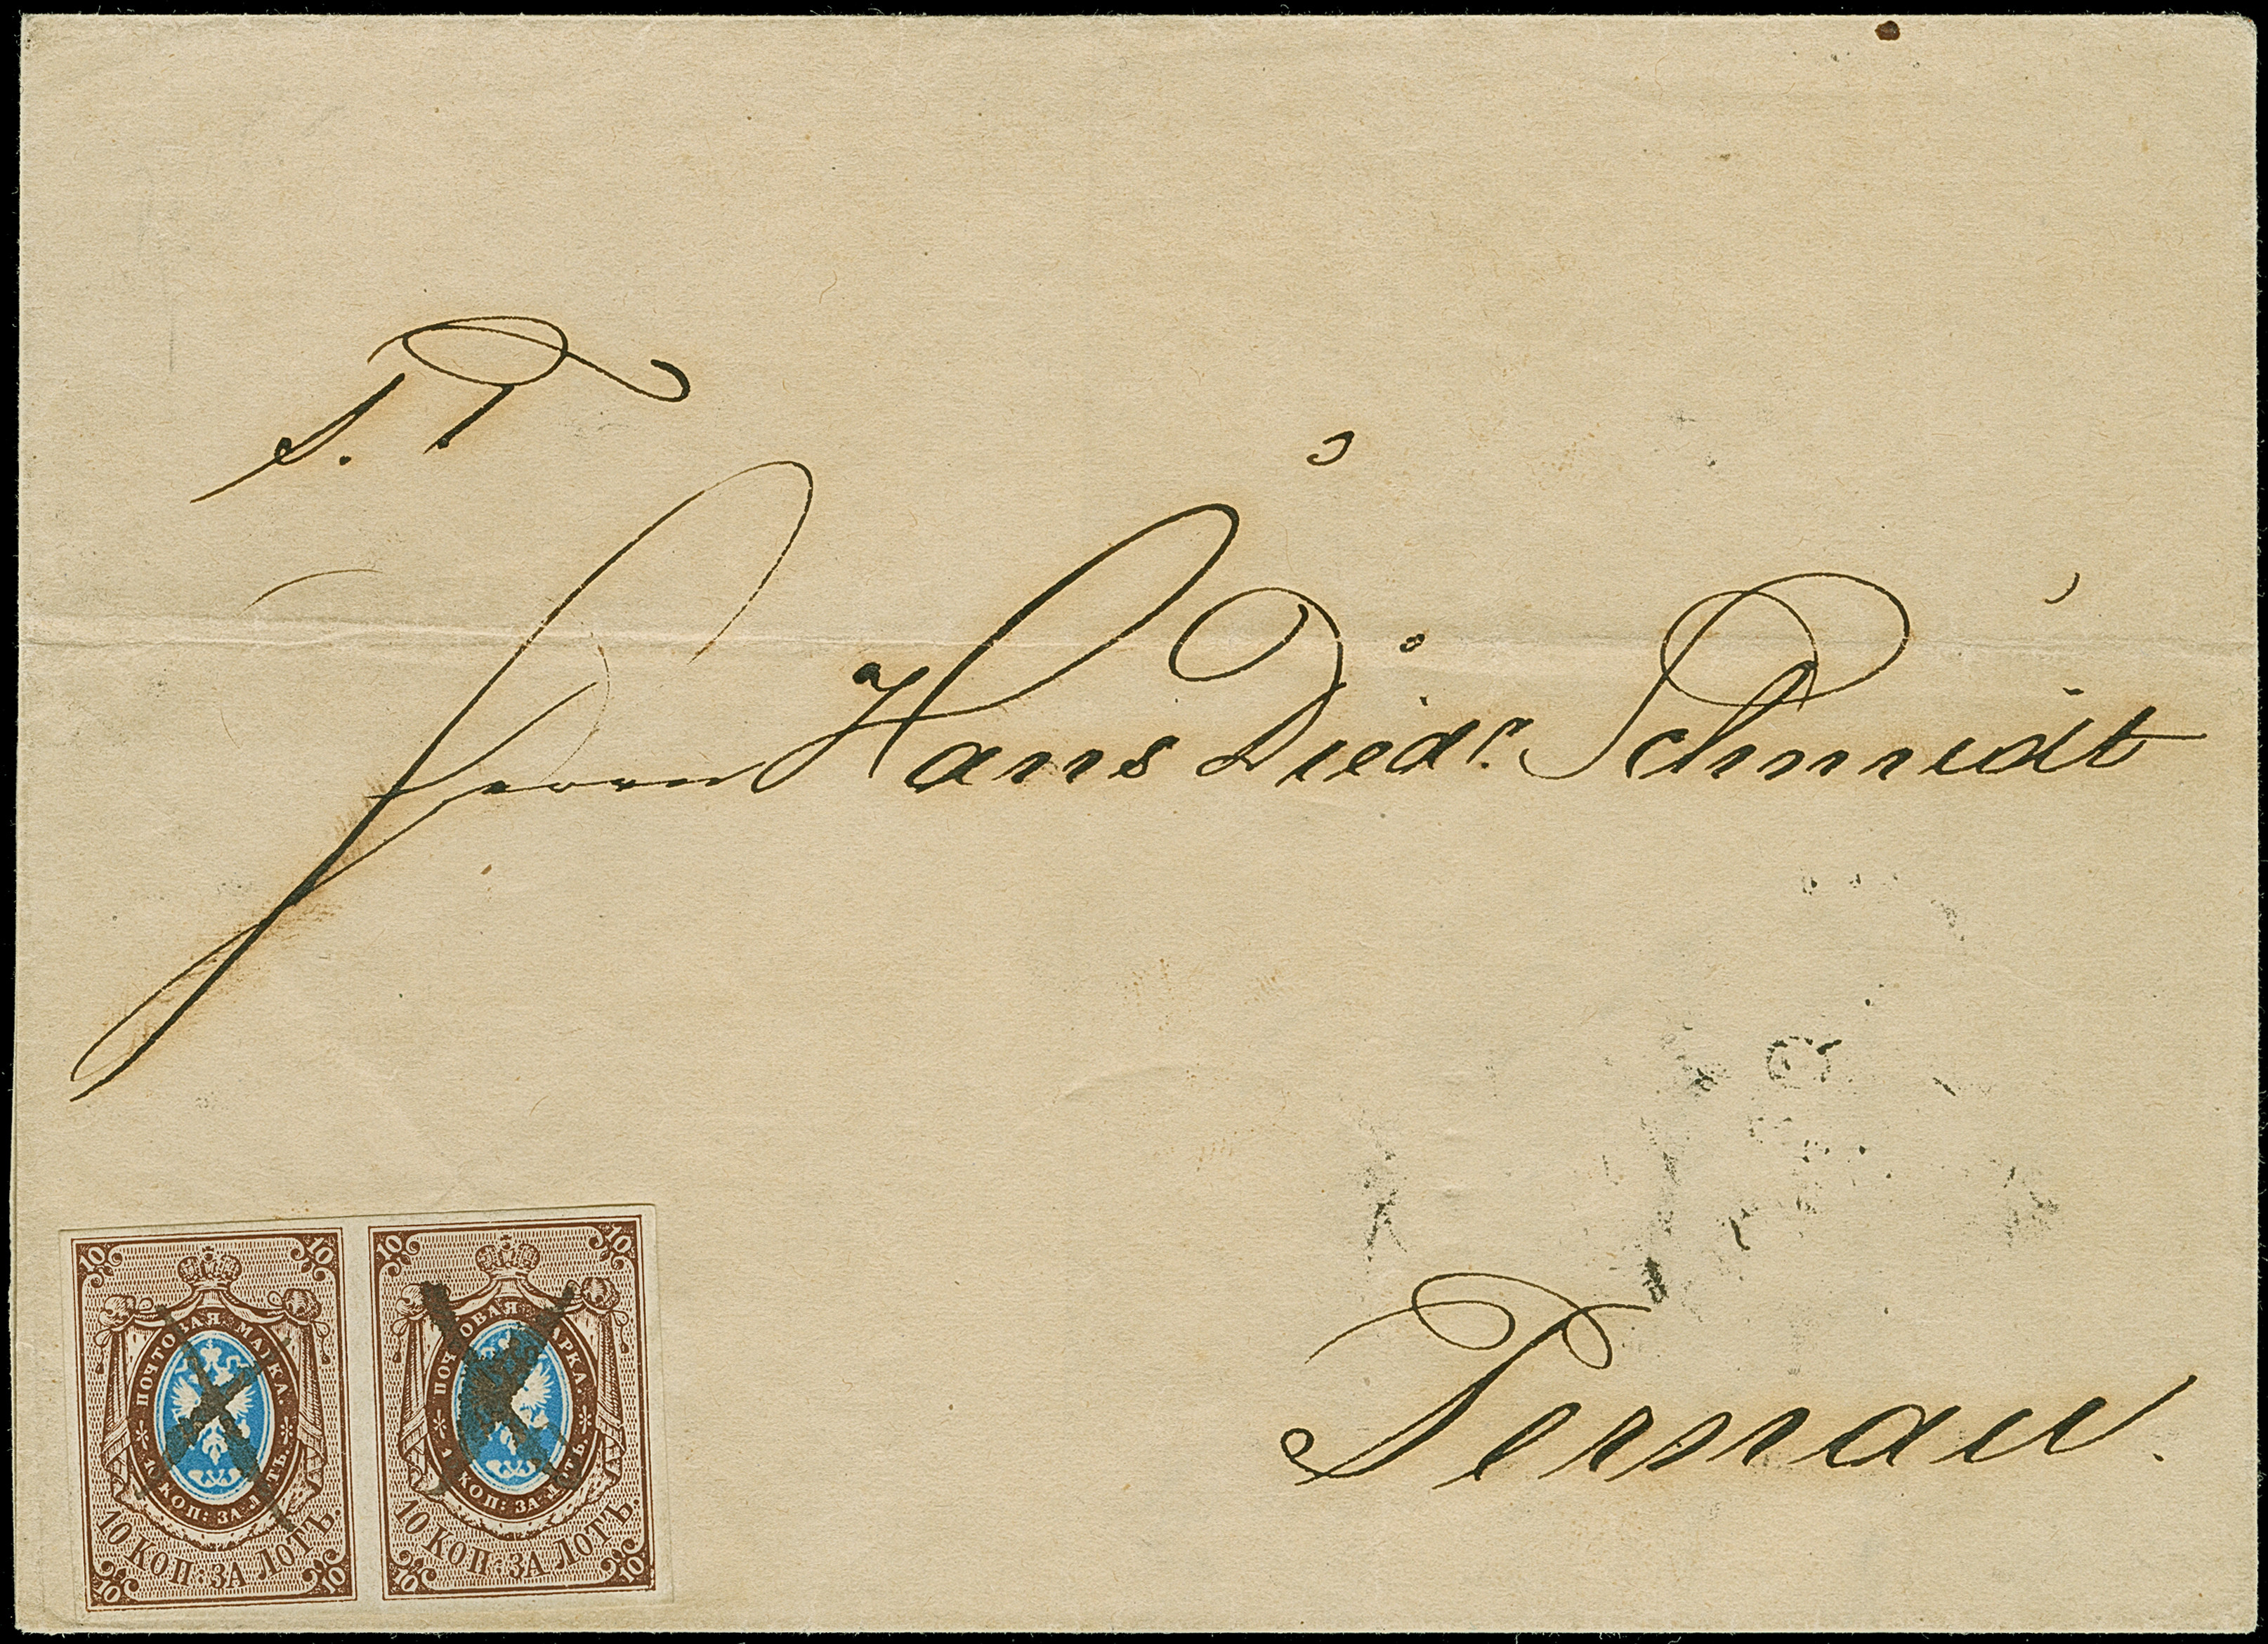 S. T.
Herrn Hans Diedr. Schmidt
Pernau.
10 10
ПОЧТОВАЯ МАРКА.
1 КОП: ЗА ЛОТЪ.
10 КОП: ЗА ЛОТЪ.
10 10
10 10
ПОЧТОВАЯ МАРКА.
1 КОП: ЗА ЛОТЪ.
10 КОП: ЗА ЛОТЪ.
10 10